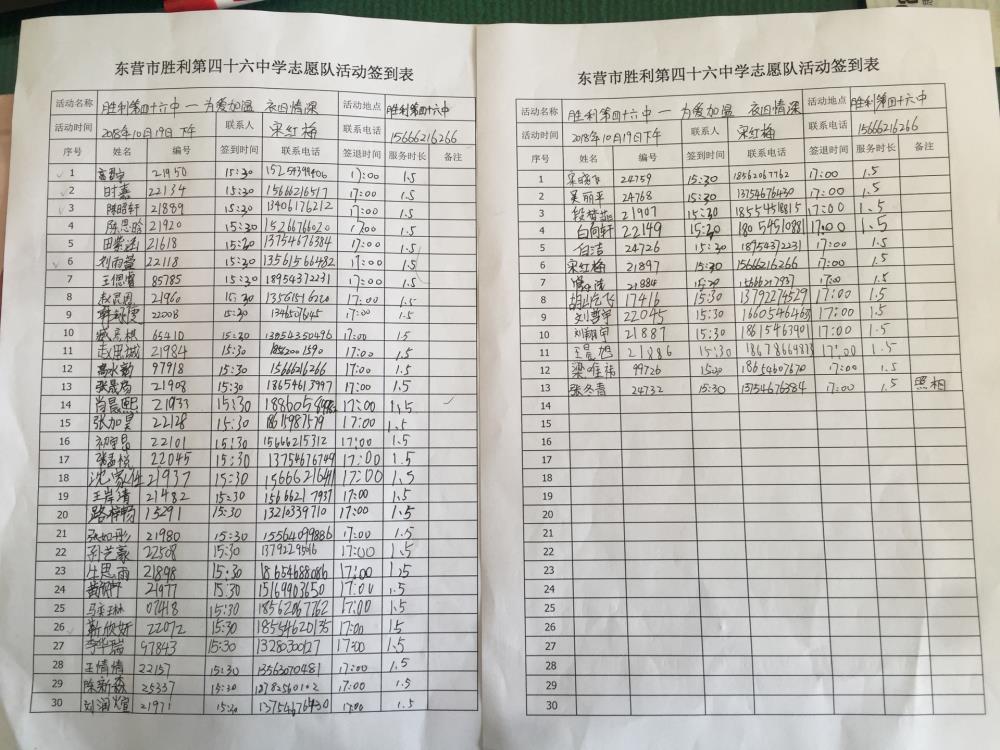 东营市胜利第四十六中学志愿队活动签到表
活动名称 胜利第四十六中 — 为爱加温 夜旧情深 活动地点 胜利第四十六中
活动时间 2018年10月19日下午 联系人 宋红梅 联系电话 15666216266
序号 姓名 编号 签到时间 联系电话 签退时间 服务时长 备注
1 21950 15:30 17:00 1.5
2 时嘉 22134 15:30 15666216517 17:00 1.5
3 陈昭轩 21889 15:30 13406176212 17:00 1.5
4 陈思晗 21920 15:30 15266766020 17:00 1.5
5 田紫涵 21618 15:30 13754676384 17:00 1.5
6 刘雨萱 22118 15:30 13561566482 17:00 1.5
7 王偲睿 85785 15:30 18954372231 17:00 1.5
8 21960 15:30 13561516220 17:00 1.5
9 22008 15:30 17:00 1.5
10 65410 15:30 13054350496 17:00 1.5
11 赵思城 21984 15:30 17:00 1.5
12 97918 15:30 15666216266 17:00 1.5
13 张晟为 21908 15:30 18654613997 17:00 1.5
14 肖晨熙 21933 15:30 17:00 1.5
15 张加昊 22128 15:30 18615987579 17:00 1.5
16 22101 15:30 15666215312 17:00 1.5
17 张孟悦 22045 15:30 13754676749 17:00 1.5
18 沈家仕 21937 15:30 17:00 1.5
19 王岸清 21482 15:30 15666217937 17:00 1.5
20 路梓畅 15291 15:30 13210339710 17:00 1.5
21 张如彤 21980 15:30 15564099886 17:00 1.5
22 孙艺豪 22508 15:30 17:00 1.5
23 牛思雨 21898 15:30 18654688086 17:00 1.5
24 21977 15:30 15169903650 17:00 1.5
25 马奕琳 07418 15:30 18562067762 17:00 1.5
26 靳欣妍 22072 15:30 17:00 1.5
27 李华瑞 97843 15:30 17:00 1.5
28 王情情 22157 15:30 13563070481 17:00 1.5
29 陈新森 25337 15:30 17:00 1.5
30 刘润煊 21971 15:30 13754676430 17:00 1.5
东营市胜利第四十六中学志愿队活动签到表
活动名称 胜利第四十六中 — 为爱加温 夜旧情深 活动地点 胜利第四十六中
活动时间 2018年10月19日下午 联系人 宋红梅 联系电话 15666216266
序号 姓名 编号 签到时间 联系电话 签退时间 服务时长 备注
1 24759 15:30 18562067762 17:00 1.5
2 吴丽平 24768 15:30 13754676430 17:00 1.5
3 21907 15:30 18554518815 17:00 1.5
4 白向轩 22149 15:30 18054510881 17:00 1.5
5 白洁 24726 15:30 18954372231 17:00 1.5
6 宋红梅 21897 15:30 15666216266 17:00 1.5
7 21884 15:30 15666217937 17:00 1.5
8 17416 15:30 13792274529 17:00 1.5
9 刘哲宇 22045 15:30 17:00 1.5
10 刘翱宇 21887 15:30 18615463901 17:00 1.5
11 王晨旭 21886 15:30 18678664878 17:00 1.5
12 梁唯佑 99726 15:30 18654607670 17:00 1.5
13 张冬青 24732 15:30 13754676384 17:00 1.5 照相
14
15
16
17
18
19
20
21
22
23
24
25
26
27
28
29
30